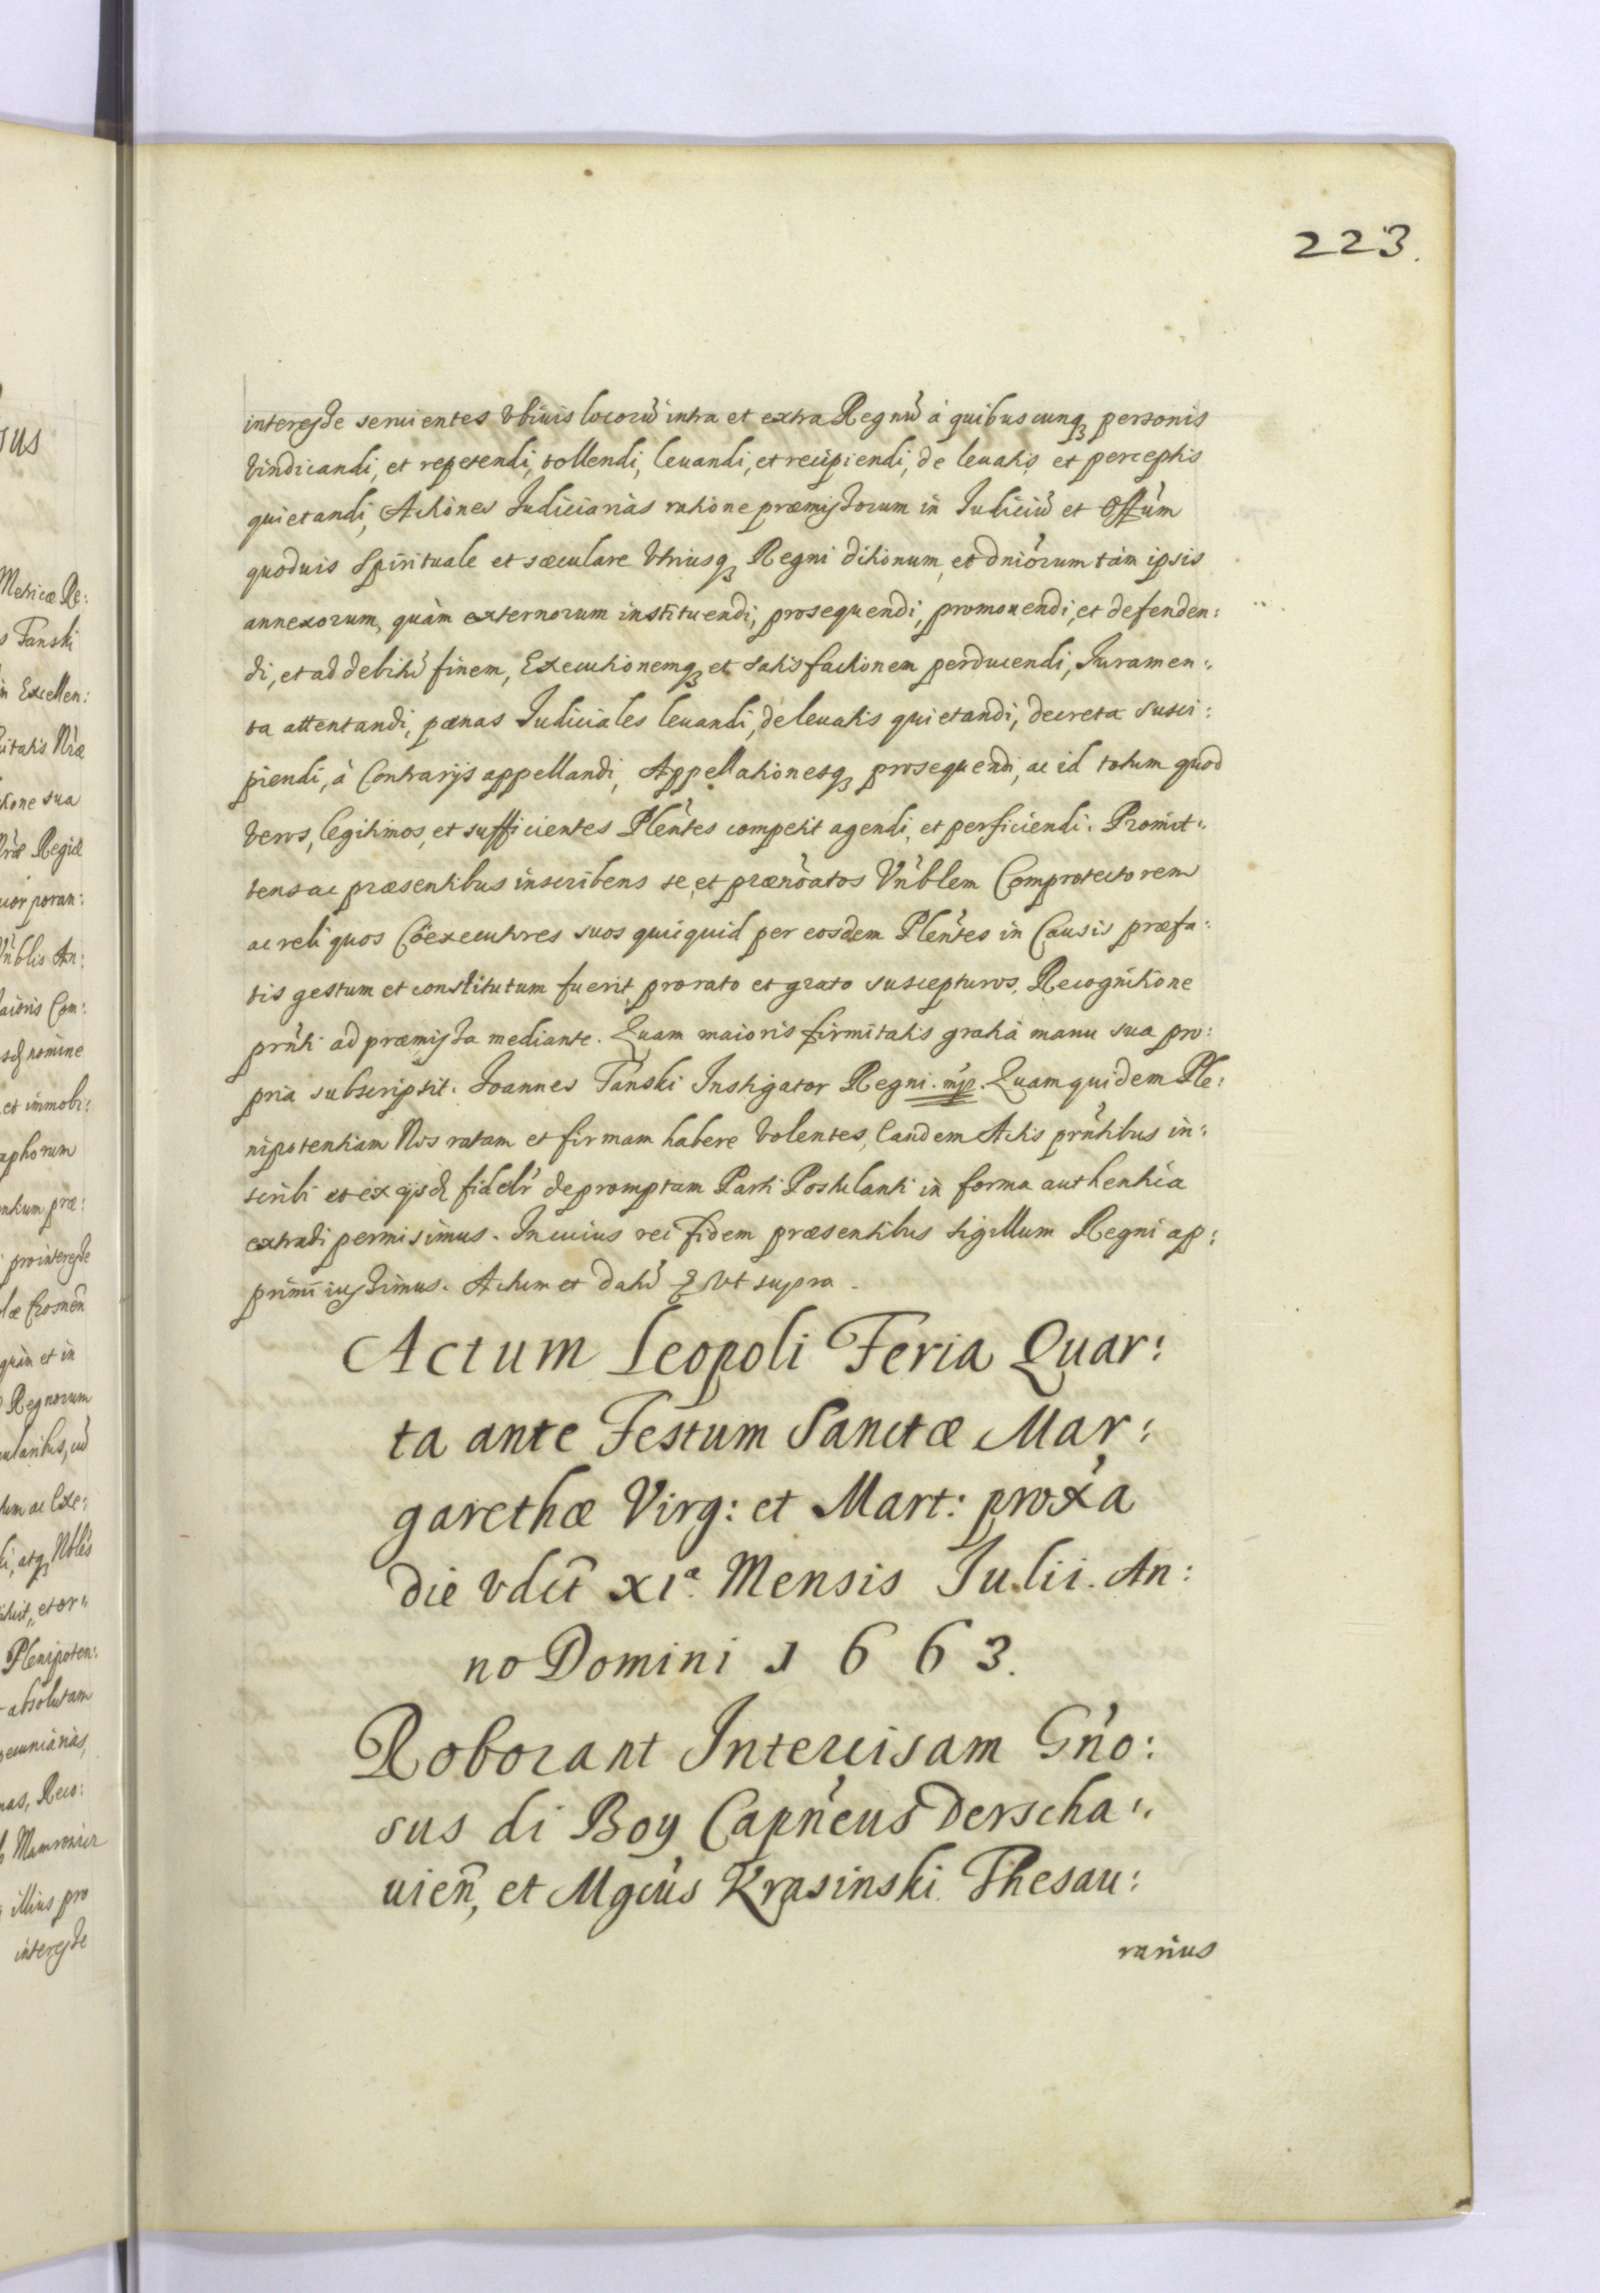 223.
interesse seruientes Vbiuis locorũ intra et extra Regnũ à quibuscunq₃ personis
Vindicandi, et repetendi, tollendi, leuandi, et recipiendi, de leuatis et perceptis
quietandi, Actiones Iudiciarias ratione præmissorum in Iudiciũ et Offũm
quoduis Spirituale et sæculare Vtriusq₃ Regni ditionum, et dniorum tàm ipsis
annexorum, quàm externorum instituendi, prosequendi, promouendi, et defenden:
di, et ad debitũ finem, Executionemq₃ et satisfactionem perducendi, Iuramen:
ta attentandi, pænas Iudiciales leuandi, de leuatis quietandi, decreta susci:
piendi, à Contrarijs appellandi, Appellationesq₃ prosequendi, ac id totum quod
Veros, legitimos, et sufficientes Plentes competit agendi, et perficiendi. Promit:
tens ac præsentibus inscribens se, et prænoatos Vnblem Comprotectorem
ac reliquos Coexecutores suos quicquid per eosdem Plentes in Causis præfa:
tis gestum et constitutum fuerit, pro rato et grato suscepturos, Recognitione
prnti ad præmissa mediante. Quam maioris firmitatis gratia manu sua pro:
pria subscripsit. Ioannes Tanski Instigator Regni. mp. Quam quidem Ple:
nipotentiam Nos ratam et firmam habere Volentes, Eandem Actis prntibus in:
scribi et ex ijsd fidelr depromptam Parti Postulanti in forma authentica
extradi permisimus. In cuius rei fidem præsentibus sigillum Regni ap:
primi iussimus. Actum et datũ Vt supra.
Actum Leopoli Feria Quar:
ta ante Festum Sanctæ Mar:
garethæ Virg: et Mart: proxa
die vdct XIª. Mensis Iulii. An:
no Domini 1663.
Roborant Intercisam Gno:
sus di Boy Capneus Derscha:
uien̄, et Mgcus Krasinski Thesau:
rarius